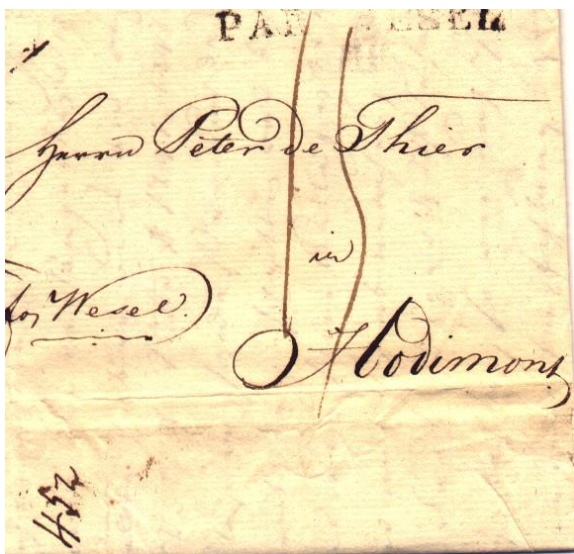 PAR WESEL
Herrn Peter de Thier
in
Wesel.
Hodimont